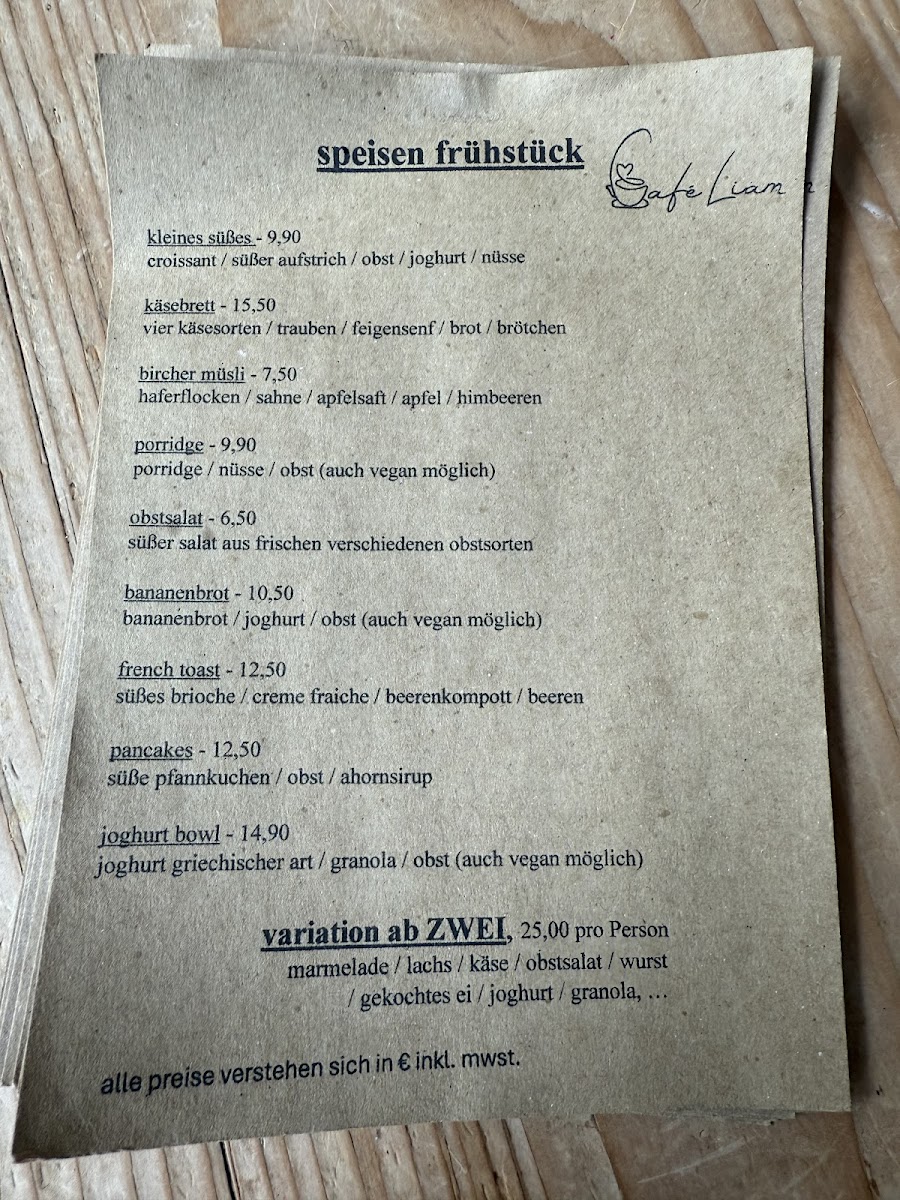 speisen frühstück
Café Liam
kleines süßes - 9,90
croissant / süßer aufstrich / obst / joghurt / nüsse
käsebrett - 15,50
vier käsesorten / trauben / feigensenf / brot / brötchen
bircher müsli - 7,50
haferflocken / sahne / apfelsaft / apfel / himbeeren
porridge - 9,90
porridge / nüsse / obst (auch vegan möglich)
obstsalat - 6,50
süßer salat aus frischen verschiedenen obstsorten
bananenbrot - 10,50
bananenbrot / joghurt / obst (auch vegan möglich)
french toast - 12,50
süßes brioche / creme fraiche / beerenkompott / beeren
pancakes - 12,50
süße pfannkuchen / obst / ahornsirup
joghurt bowl - 14,90
joghurt griechischer art / granola / obst (auch vegan möglich)
variation ab ZWEI, 25,00 pro Person
marmelade / lachs / käse / obstsalat / wurst
/ gekochtes ei / joghurt / granola, …
alle preise verstehen sich in € inkl. mwst.